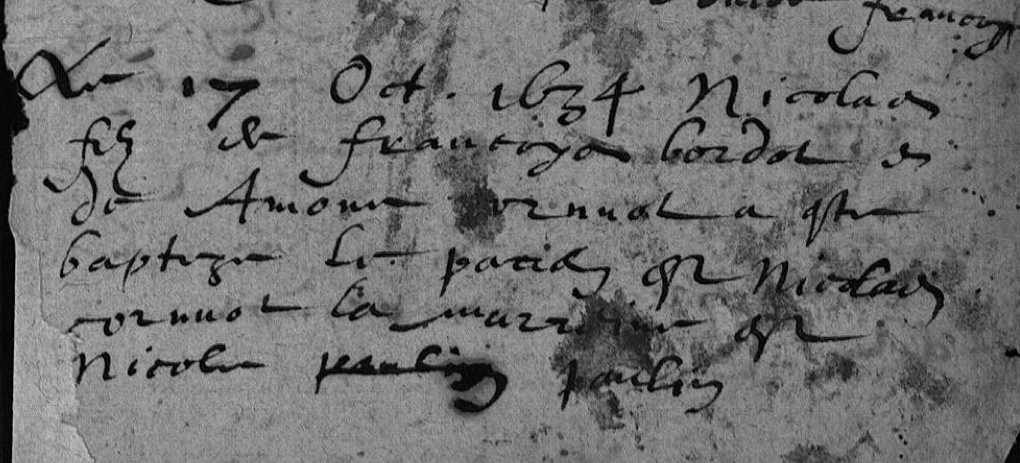 francoys
Le 17 Oct. 1634 Nicolas
filz de francoys bordot et
de Amour cornuot a este
baptize le parain est Nicolas
cornuot la marraine est
Nicole paulin paulin